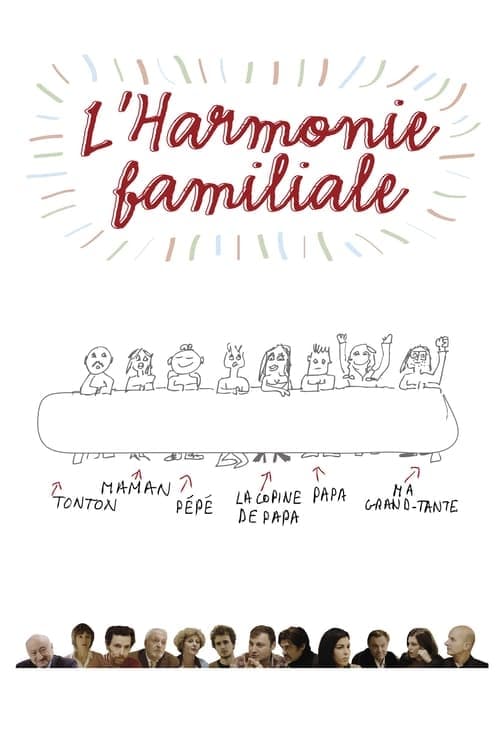 L'Harmonie
familiale
TONTON
MAMAN
PÉPÉ
LA COPINE
DE PAPA
PAPA
MA
GRAND-TANTE